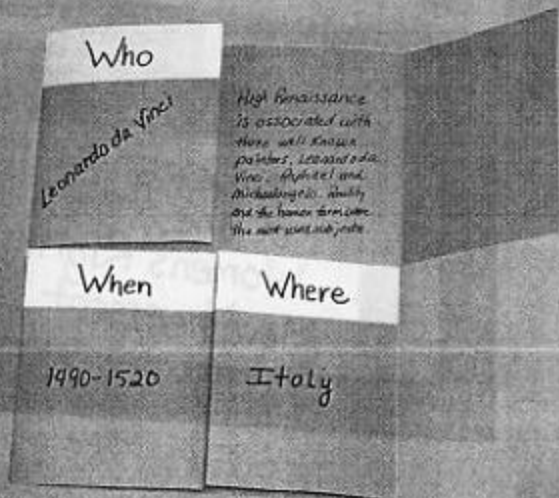 Who
Leonardo da Vinci
High Renaissance
is associated with
three well known
painters, Leonardo da
Vinci, Raphael and
Michaelangelo. Reality
and the human form were
the most used subjects.
When
1490-1520
Where
Italy